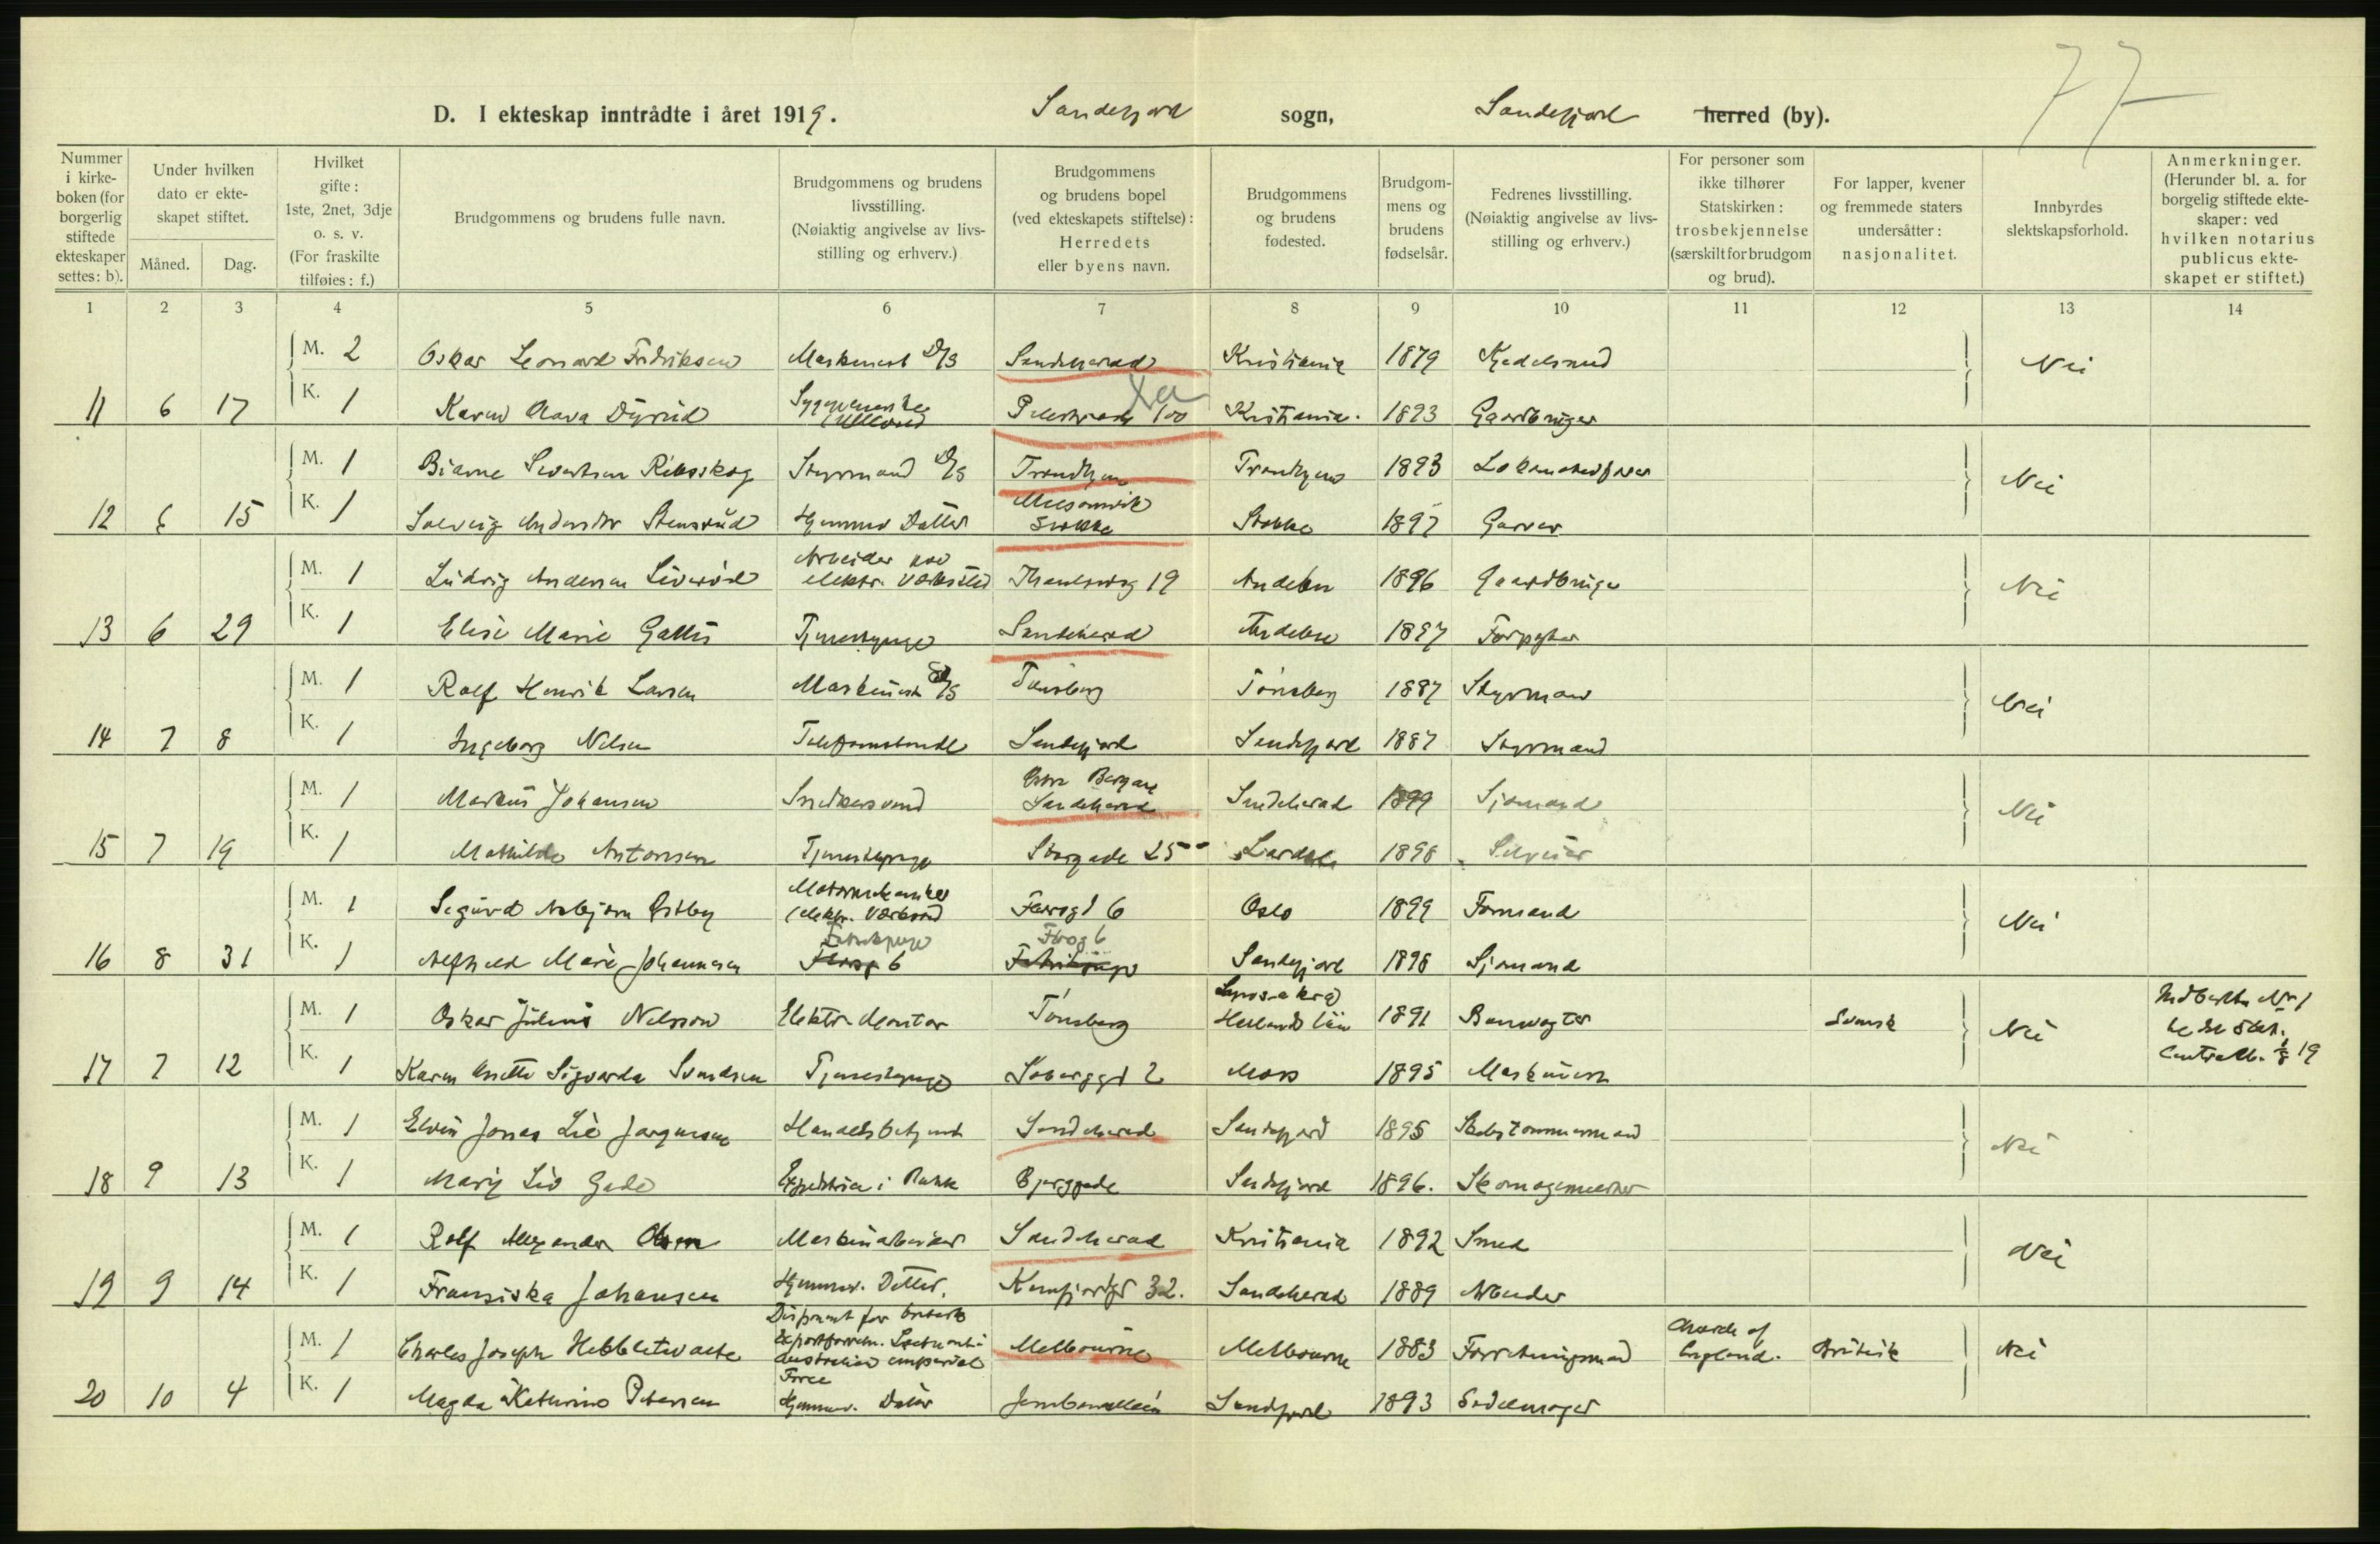 77
D. I ekteskap inntrådte i året 1919. Sandefjord sogn, Sandefjord herred (by).
Nummer i kirke-boken (for borgerlig stiftede ekteskaper settes: b).
Under hvilken dato er ekte-skapet stiftet.
Måned. Dag.
Hvilket gifte: 1ste, 2net, 3dje o. s. v. (For fraskilte tilføies: f.)
Brudgommens og brudens fulle navn.
Brudgommens og brudens livsstilling. (Nøiaktig angivelse av livs-stilling og erhverv.)
Brudgommens og brudens bopel (ved ekteskapets stiftelse): Herredets eller byens navn.
Brudgommens og brudens fødested.
Brudgom-mens og brudens fødselsår.
Fedrenes livsstilling. (Nøiaktig angivelse av livs-stilling og erhverv.)
For personer som ikke tilhører Statskirken: trosbekjennelse (særskilt for brudgom og brud).
For lapper, kvener og fremmede staters undersåtter: nasjonalitet.
Innbyrdes slektskapsforhold.
Anmerkninger. (Herunder bl. a. for borgelig stiftede ekte-skaper: ved hvilken notarius publicus ekte-skapet er stiftet.)
1 2 3 4 5 6 7 8 9 10 11 12 13 14
M. 2 Oskar Leonard Fredriksen Maskinist D/S Sandeherad Kristiania 1879 Kjedelsmed Nei
11 6 17 K. 1 Karen Olava Dyrud Sygepleierske Ullevaal 100 Kristiania. 1893 Gaardbruger
M. 1 Bjarne Sivertsen Styrmand D/S Trondhjem Trondhjem 1893 Nei
12 6 15 K. 1 Solveig Andersdtr Stensrud Hjemmev Datter Melsomvik Stokke Stokke 1897 Garver
M. 1 Ludvig Andersen Liverød Arbeider ved elektr. Værksted Thaulowsg 19 Andebu 1896 Gaardbruger Nei
13 6 29 K. 1 Elise Marie Tjenestepige Sandeherad Andebu 1897 Forpagter
M. 1 Rolf Henrik Larsen Maskinist D/S Tønsberg Tønsberg 1887 Styrmand Nei
14 7 8 K. 1 Ingeborg Nilsen Telefonistinde Sandefjord Sandefjord 1887 Styrmand
M. 1 Markus Johansen Snedkersvend Bergan Sandeherad Sandeherad 1899 Sjømand Nei
15 7 19 K. 1 Mathilde Antonsen Tjenestepige Storgade 25 Lardal 1898
M. 1 Sigurd Asbjørn Østby Motormekaniker (elektr. Værksted Oslo 1899 Formand Nei
16 8 31 K. 1 Alfhild Marie Johannesen Fabrikpige Sandefjord 1898 Sjømand
M. 1 Oskar Julius Nilsson Elektr. Montør Tønsberg Hallands län 1891 Banevogter Svensk Nei
17 7 12 K. 1 Karen Anette Sigvarda Svendsen Tjenestepige 2 Moss 1895 Maskinist
M. 1 Elvin Jonas Lie Jørgensen Handelsbetjent Sandeherad Sandefjord 1895 Skibstømmermand Nei
18 9 13 K. 1 Mary Liv Gade Expeditrice i Bjerggade Sandefjord 1896. Skomagermester
M. 1 Rolf Alexander Olsen Maskinarbeider Sandeherad Kristiania 1892 Smed Nei
19 9 14 K. 1 Franziska Johansen Hjemmev. Datter. 32. Sandeherad 1889 Arbeider
M. 1 Charles Joseph Hebbletwaite Disponent for Australian imperial Force Melbourne Melbourne 1883 Forretningsmand Church of England. Britisk Nei
20 10 4 K. 1 Magda Katherine Petersen Hjemmev. Datter Jernbanealleen Sandefjord 1893 Sadelmager